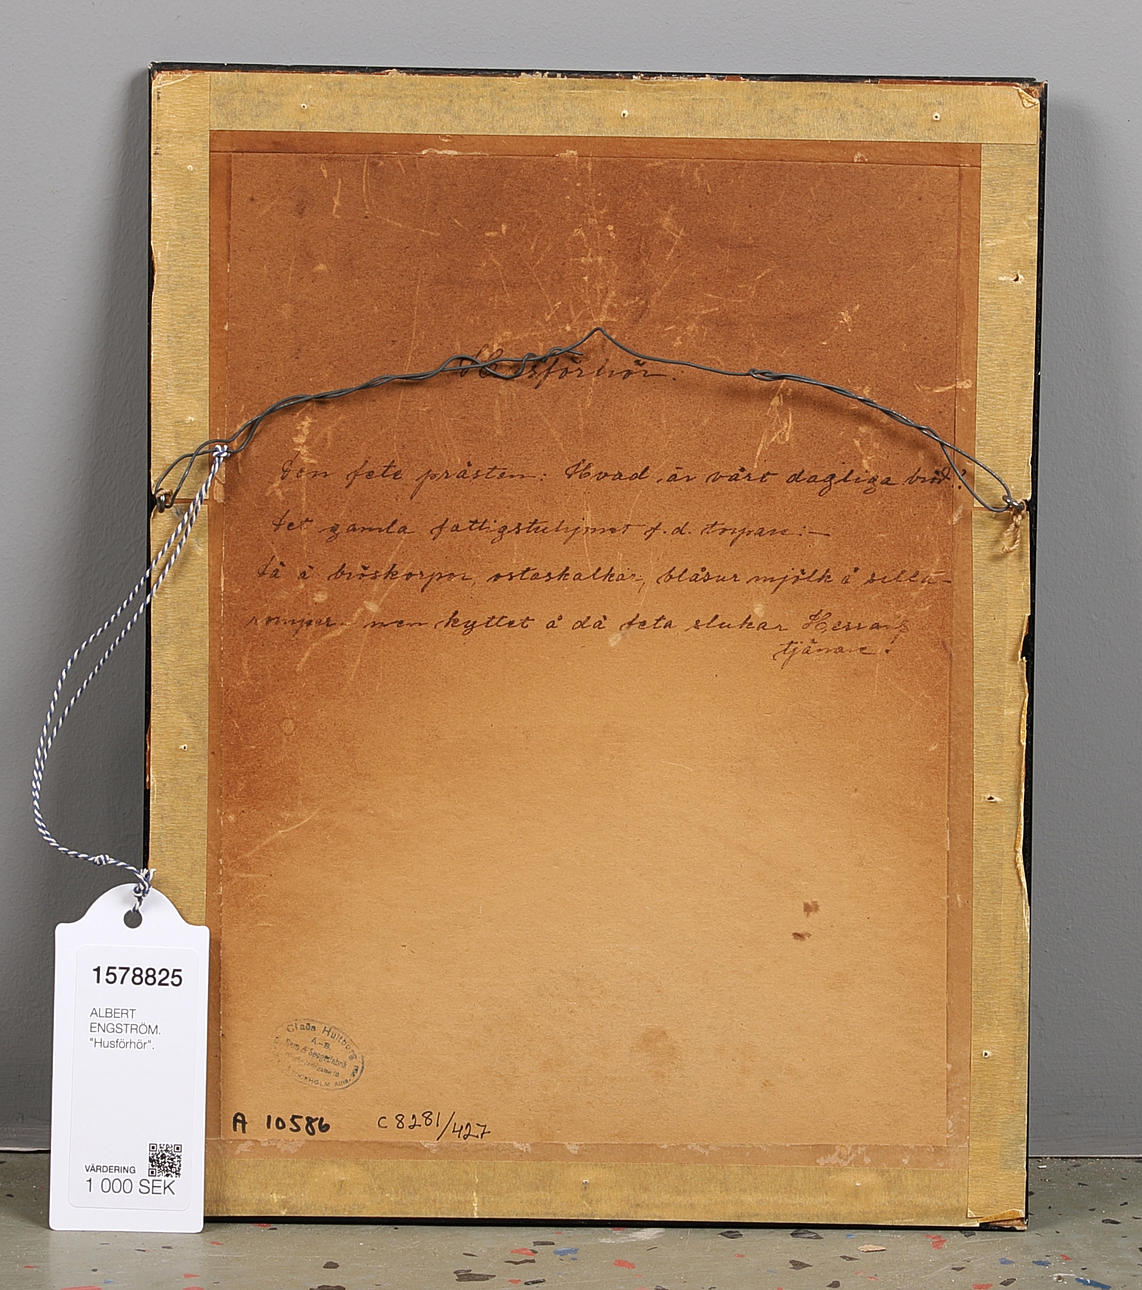 Husförhör.
Den fete prästen: Hvad är vårt dagliga bröd?
Det gamla fattigstuhjonet f.d. torpare:—
Dä ä bröskorpor, ostaskalkar, blåsur mjölk å silla-
romper – men kyttet å dä feta slukar Herrans
tjänare!
Claës Hultberg
A.-B.
STOCKHOLM
A 10586 C 8281/427
1578825
ALBERT
ENGSTRÖM.
"Husförhör".
VÄRDERING
1 000 SEK